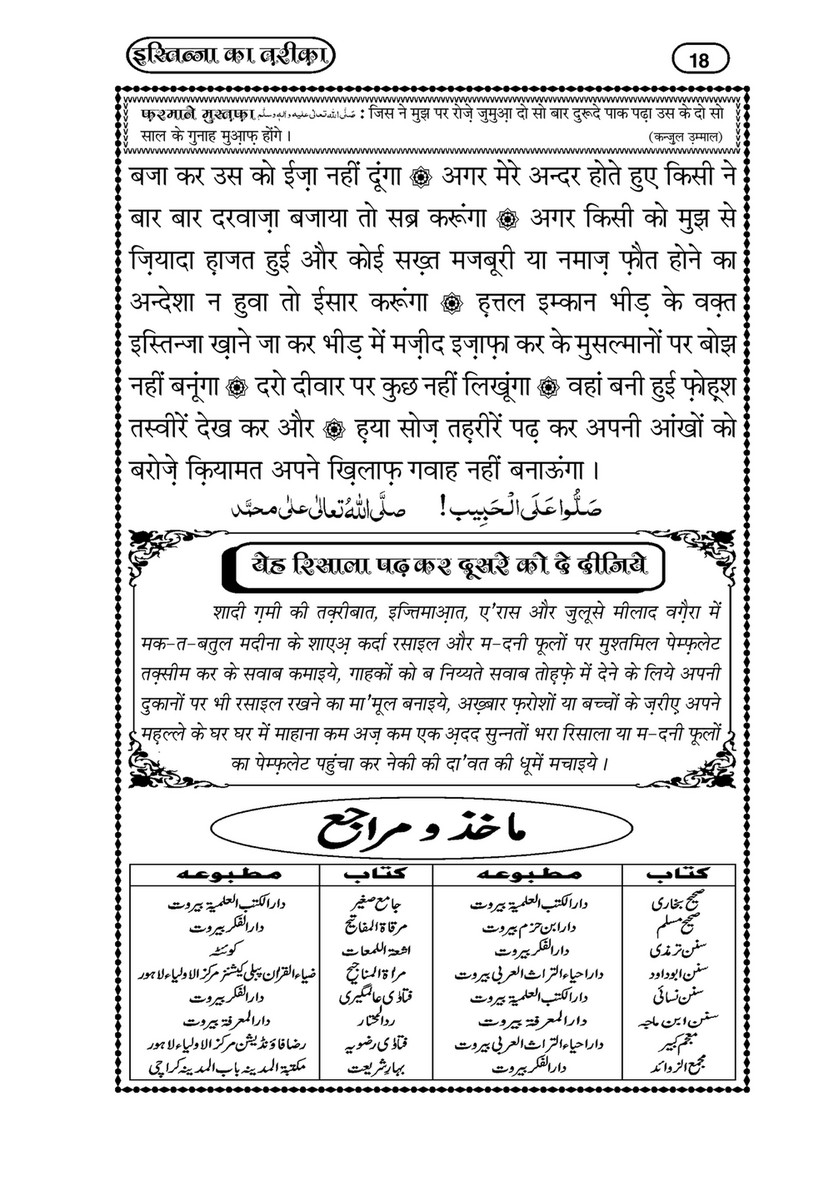 इस्तिन्जा का त़रीक़ा
18
फ़रमाने मुस्त़फ़ा صَلَّى اللہ تعالٰی علیہ واٰلہٖ وسلَّم : जिस ने मुझ पर रोज़े जुमुआ़ दो सो बार दुरूदे पाक पढ़ा उस के दो सो
साल के गुनाह मुआ़फ़ होंगे । (कन्ज़ुल उ़म्माल)
बजा कर उस को ईज़ा नहीं दूंगा ۞ अगर मेरे अन्दर होते हुए किसी ने
बार बार दरवाज़ा बजाया तो सब्र करूंगा ۞ अगर किसी को मुझ से
ज़ियादा ह़ाजत हुई और कोई सख़्त मजबूरी या नमाज़ फ़ौत होने का
अन्देशा न हुवा तो ईसार करूंगा ۞ ह़त्तल इम्कान भीड़ के वक़्त
इस्तिन्जा ख़ाने जा कर भीड़ में मज़ीद इज़ाफ़ा कर के मुसल्मानों पर बोझ
नहीं बनूंगा ۞ दरो दीवार पर कुछ नहीं लिखूंगा ۞ वहां बनी हुई फ़ोह़्श
तस्वीरें देख कर और ۞ ह़या सोज़ तह़रीरें पढ़ कर अपनी आंखों को
बरोज़े क़ियामत अपने ख़िलाफ़ गवाह नहीं बनाऊंगा ।
صَلُّوا عَلَى الْحَبِيب! صلَّى اللهُ تعالٰی علٰی محمَّد
येह रिसाला पढ़ कर दूसरे को दे दीजिये
शादी ग़मी की तक़्रीबात, इज्तिमाआ़त, ए'रास और जुलूसे मीलाद वग़ैरा में
मक-त-बतुल मदीना के शाएअ़ कर्दा रसाइल और म-दनी फूलों पर मुश्तमिल पेम्फ़लेट
तक़्सीम कर के सवाब कमाइये, गाहकों को ब निय्यते सवाब तोह़फ़े में देने के लिये अपनी
दुकानों पर भी रसाइल रखने का मा'मूल बनाइये, अख़्बार फ़रोशों या बच्चों के ज़रीए अपने
मह़ल्ले के घर घर में माहाना कम अज़ कम एक अ़दद सुन्नतों भरा रिसाला या म-दनी फूलों
का पेम्फ़लेट पहुंचा कर नेकी की दा'वत की धूमें मचाइये ।
ماخذ و مراجع
کتاب مطبوعہ کتاب مطبوعہ
صحیح بخاری دارالکتب العلمیۃ بیروت جامع صغیر دارالکتب العلمیۃ بیروت
صحیح مسلم دارابن حزم بیروت مرقاۃ المفاتیح دارالفکر بیروت
سنن ترمذی دارالفکر بیروت اشعۃ اللمعات کوئٹہ
سنن ابوداود داراحیاء التراث العربی بیروت مراۃ المناجیح ضیاء القران پبلی کیشنز مرکز الاولیاء لاہور
سنن نسائی دارالکتب العلمیۃ بیروت فتاوٰی عالمگیری دارالفکر بیروت
سنن ابن ماجہ دارالمعرفۃ بیروت ردالمحتار دارالمعرفۃ بیروت
معجم کبیر داراحیاء التراث العربی بیروت فتاوٰی رضویہ رضا فاؤنڈیشن مرکز الاولیاء لاہور
مجمع الزوائد دارالفکر بیروت بہار شریعت مکتبۃ المدینہ باب المدینہ کراچی